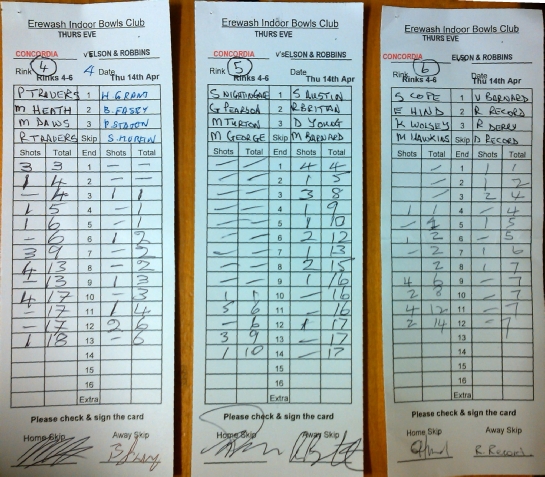 Erewash Indoor Bowls Club
THURS EVE
CONCORDIA v's ELSON & ROBBINS
Rink 4 Date
Rinks 4-6 4 Thu 14th Apr
P TRAVERS 1 H GRANT
M HEATH 2
M DAWS 3
R TRAVERS Skip
Shots Total End Shots Total
3 3 1 — —
1 4 2 — —
— 4 3 1 1
1 5 4 — 1
1 6 5 — 1
— 6 6 1 2
3 9 7 — 2
4 13 8 — 2
— 13 9 1 3
4 17 10 — 3
— 17 11 1 4
— 17 12 2 6
1 18 13 — 6
14
15
16
Extra
Please check & sign the card
Home Skip Away Skip
Erewash Indoor Bowls Club
THURS EVE
CONCORDIA v's ELSON & ROBBINS
Rink 5 Date
Rinks 4-6 Thu 14th Apr
S NIGHTINGALE 1 S AUSTIN
G PEARSON 2 R BRITTAN
M TURTON 3 D YOUNG
M GEORGE Skip M BARNARD
Shots Total End Shots Total
— — 1 4 4
— — 2 1 5
— — 3 3 8
— — 4 1 9
— — 5 1 10
— — 6 2 12
— — 7 1 13
— — 8 2 15
— — 9 1 16
1 1 10 — 16
5 6 11 — 16
— 6 12 1 17
3 9 13 — 17
1 10 14 — 17
15
16
Extra
Please check & sign the card
Home Skip Away Skip
Erewash Indoor Bowls Club
THURS EVE
CONCORDIA ELSON & ROBBINS
Rink 6 Date
Rinks 4-6 Thu 14th Apr
S COPE 1 V BARNARD
E HIND 2 R RECORD
K WOLSEY 3 R DERRY
M HAWKINS Skip D RECORD
Shots Total End Shots Total
— 1 1 1
— 2 1 2
— 3 2 4
1 1 4 — 4
— 5 1 5
1 2 6 — 5
— 2 7 1 6
2 8 1 7
4 6 9 — 7
2 8 10 — 7
4 12 11 — 7
2 14 12 — 7
13
14
15
16
Extra
Please check & sign the card
Home Skip Away Skip
R. Record